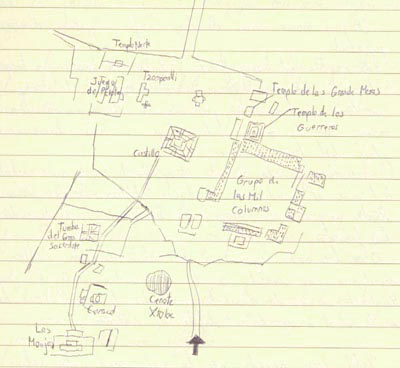 Templo Norte
Juego
de
Pelota
Tzompantli
Templo de las Grande Mesas
Templo de los
Guerreros
Castillo
Grupo de
las Mil
Columnas
Tumba
del Gran
Sacerdote
Caracol
Cenote
Xtoloc
Las
Monjas